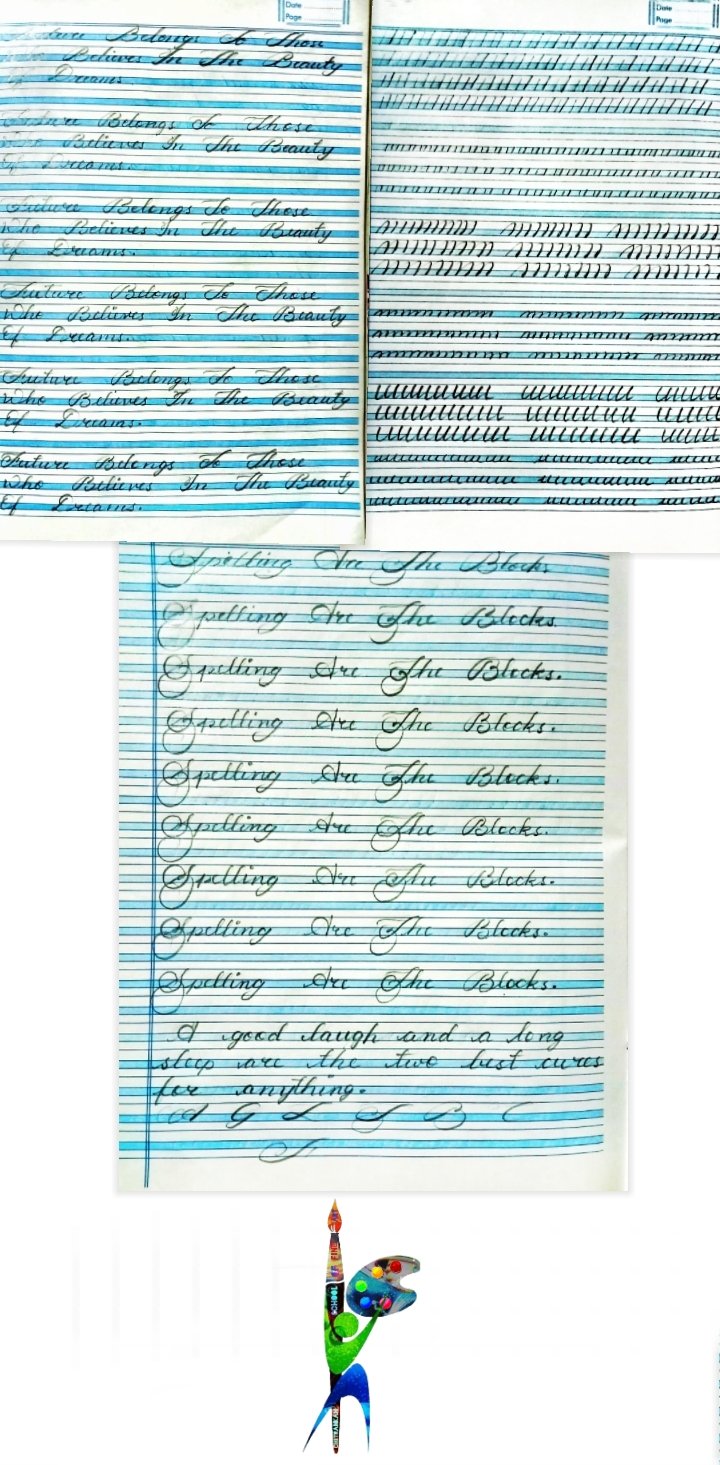 Date
Page
Future Belongs To Those
Who Believes In The Beauty
Of Dreams
Future Belongs To Those
Who Believes In The Beauty
Of Dreams.
Future Belongs To Those
Who Believes In The Beauty
Of Dreams.
Future Belongs To Those
Who Believes In The Beauty
Of Dreams.
Future Belongs To Those
Who Believes In The Beauty
Of Dreams.
Future Belongs To Those
Who Believes In The Beauty
Of Dreams.
Date
Page
Spelling Are The Blocks
Spelling Are The Blocks
Spelling Are The Blocks.
Spelling Are The Blocks.
Spelling Are The Blocks.
Spelling Are The Blocks.
Spelling Are The Blocks.
Spelling Are The Blocks.
Spelling Are The Blocks.
A good laugh and a long
sleep are the two best cures
for anything.
A G L S B C
S
SCHOOL OF FINE